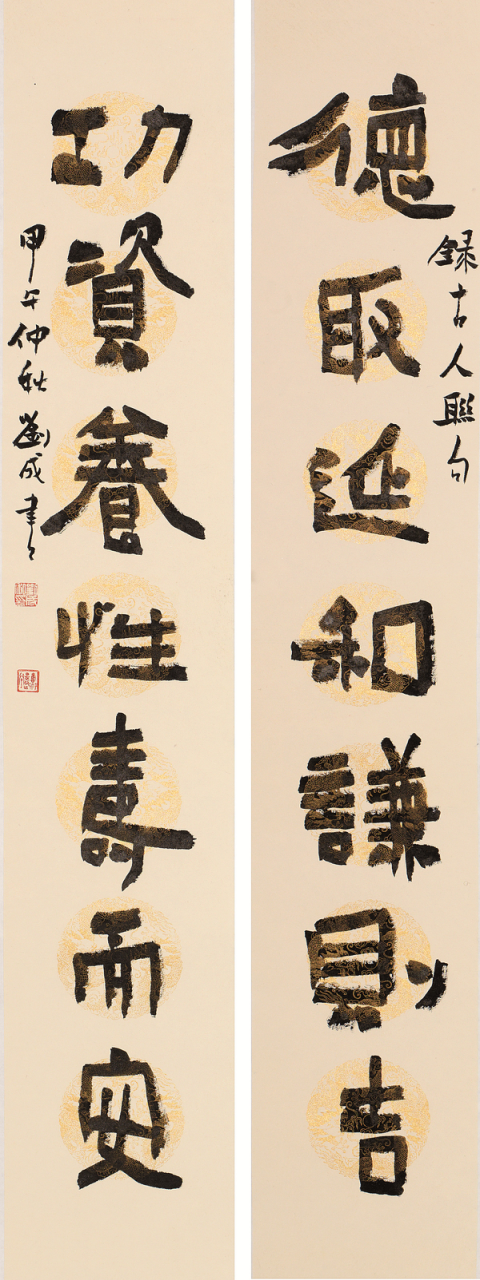 錄古人聯句
德取延和謙則吉
功資養性壽而安
甲午仲秋劉成書之